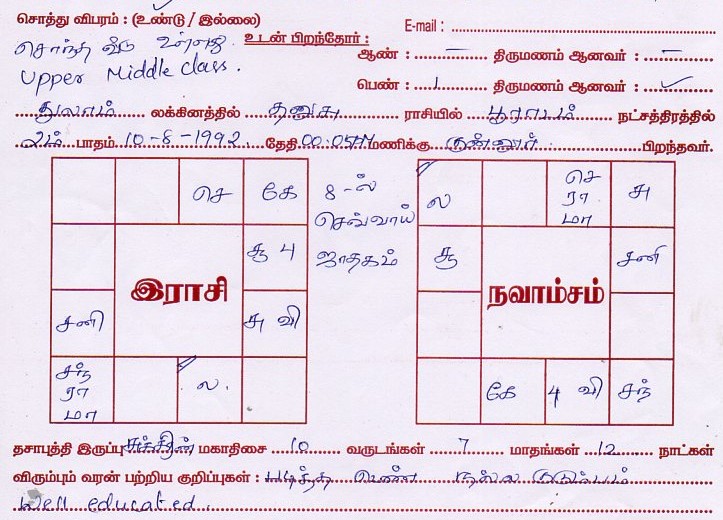 சொத்து விபரம் : (உண்டு / இல்லை)
E-mail :
சொந்த வீடு உள்ளது. உடன் பிறந்தோர் :
ஆண் : – திருமணம் ஆனவர் : –
Upper Middle class.
பெண் : 1 திருமணம் ஆனவர் : ✓
துலாம் லக்கினத்தில் தனுசு ராசியில் பூராடம் நட்சத்திரத்தில்
2ம் பாதம் 10-8-1992 தேதி 00:05 மணிக்கு குன்னூர் பிறந்தவர்.
செ கே
சூ பு
சனி
சு வி
சந் ரா மா
ல.
இராசி
8-ல்
செவ்வாய்
ஜாதகம்
ல
செ ரா மா
சு
சூ
சனி
கே
பு வி
சந்
நவாம்சம்
தசாபுத்தி இருப்பு சுக்கிரன் மகாதிசை 10 வருடங்கள் 7 மாதங்கள் 12 நாட்கள்
விரும்பும் வரன் பற்றிய குறிப்புகள் : படித்த பெண் நல்ல குடும்பம்
Well educated.